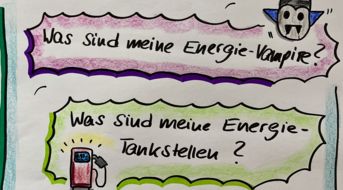 Was sind meine Energie-Vampire?
Was sind meine Energie-
Tankstellen ?